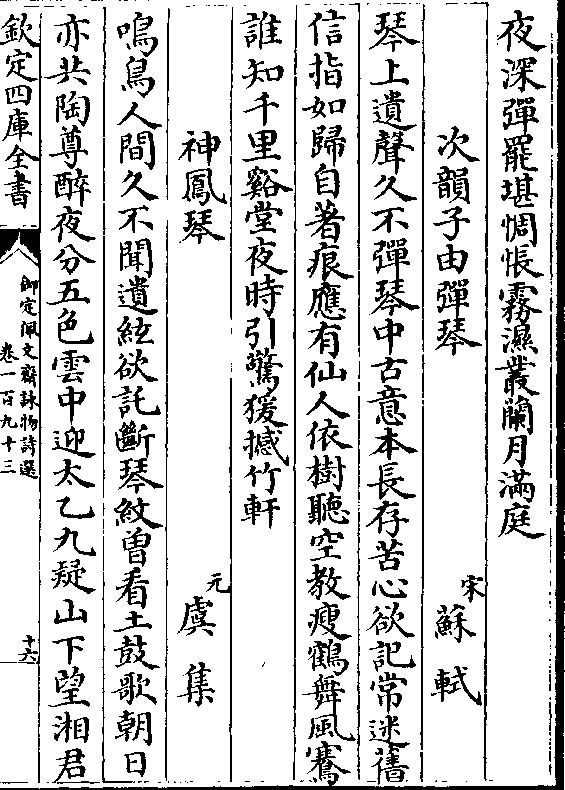 夜深彈罷堪惆悵霧濕叢蘭月滿庭
次韻子由彈琴
宋蘇軾
琴上遺聲久不彈琴中古意本長存苦心欲記常迷舊
信指如歸自著痕應有仙人依樹聽空教瘦鶴舞風騫
誰知千里谿堂夜時引驚猨撼竹軒
神鳳琴
元虞集
鳴鳥人間久不聞遺絃欲託斷琴紋曽看土鼓歌朝日
亦共陶尊醉夜分五色雲中迎太乙九疑山下望湘君
欽定四庫全書
御定佩文齋詠物詩選
卷一百九十三
十六